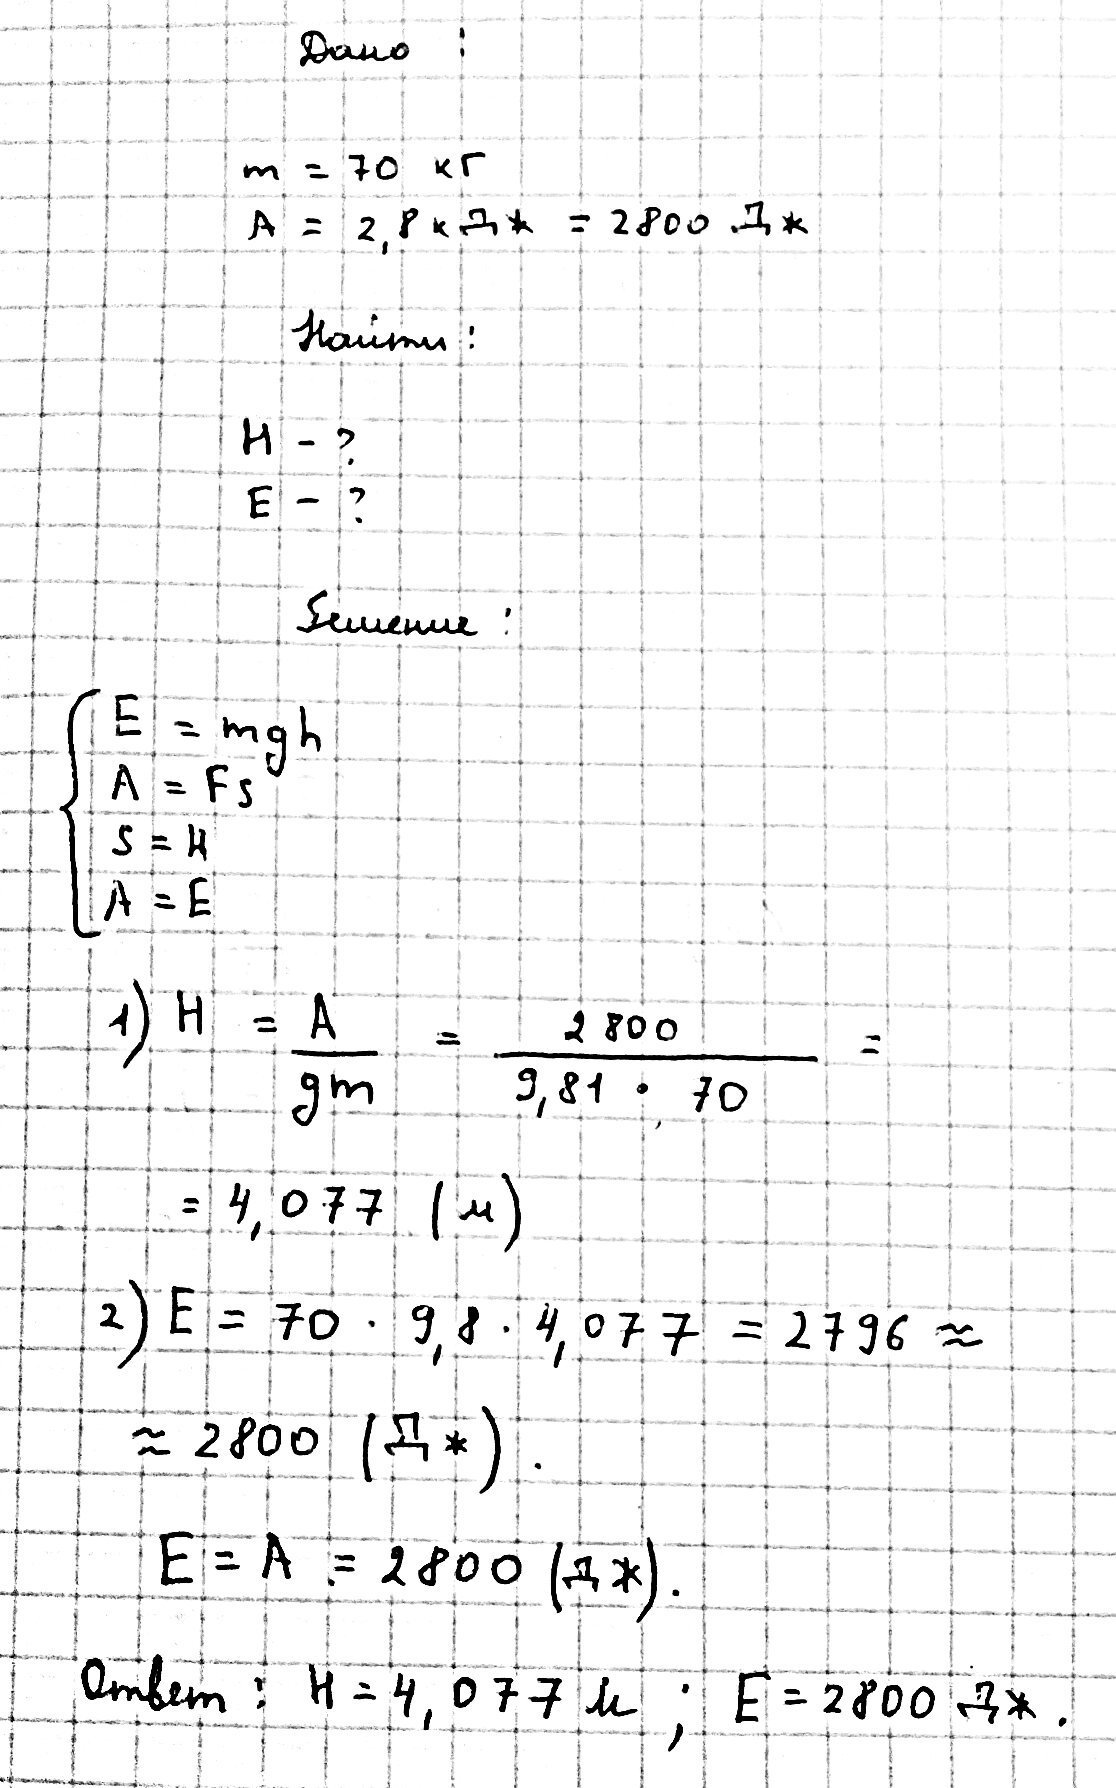 Дано :
m = 70 кг
A = 2,8 кДж = 2800 Дж
Найти :
H - ?
E - ?
Решение :
E = mgh
A = Fs
S = H
A = E
1) H = A / gm = 2800 / 9,81 · 70 =
= 4,077 (м)
2) E = 70 · 9,8 · 4,077 = 2796 ≈
≈ 2800 (Дж) .
E = A = 2800 (Дж) .
Ответ : H = 4,077 м ; E = 2800 Дж .